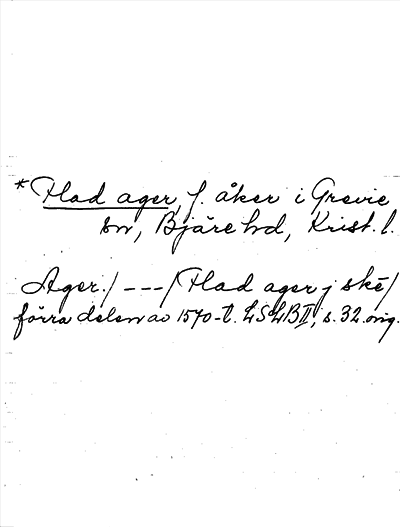 *Flad ager, f. åker i Grevie
sn, Bjäre hd, Krist. l.
Ager./ ---/ Flad ager j skè/
förra delen av 1570-t. LSLB II, s. 32 orig.